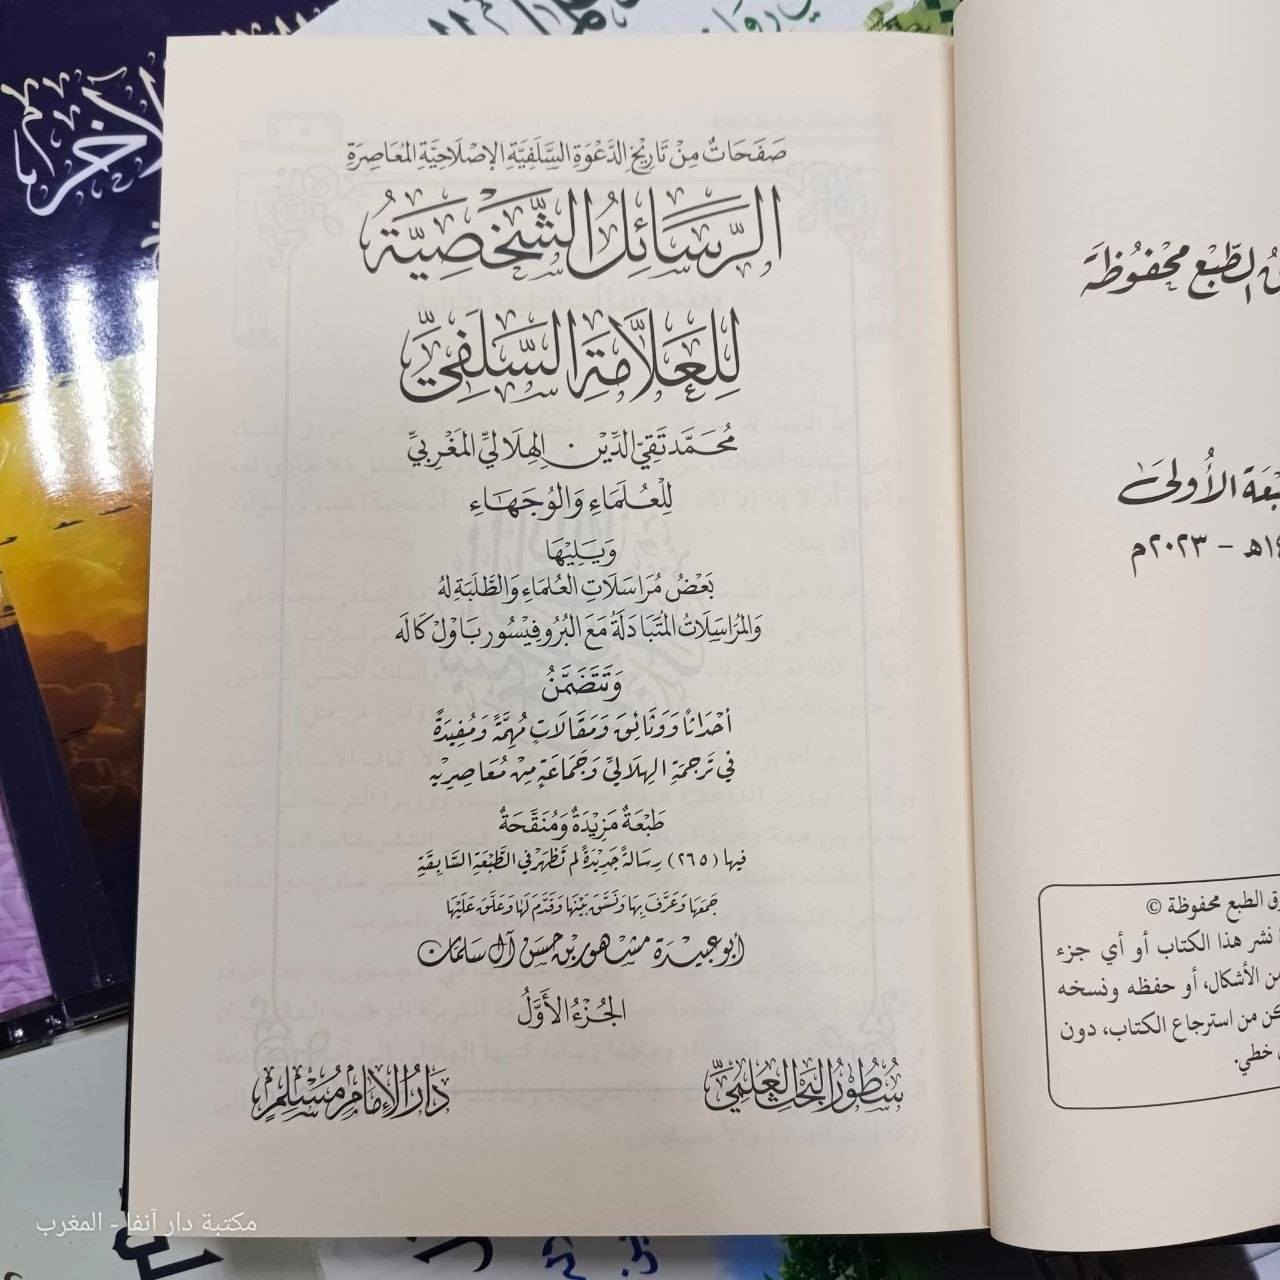 صَفَحَاتٌ مِنْ تَارِيْخِ الدَّعْوَةِ السَّلَفِيَّةِ الإِصْلَاحِيَّةِ المُعَاصِرَةِ
الرَّسَائِلُ الشَّخْصِيَّةُ
لِلعَلَّامَةِ السَّلَفِيِّ
مُحَمَّد تَقِيِّ الدِّيْنِ الهِلَالِيِّ المَغْرِبِيِّ
لِلْعُلَمَاءِ وَالوُجَهَاءِ
وَيَلِيْهَا
بَعْضُ مُرَاسَلَاتِ العُلَمَاءِ وَالطَّلَبَةِ لهُ
وَالمُرَاسَلَاتُ المُتَبَادَلَةُ مَعَ البُرُوفِيْسُور بَاوْل كَالَه
وَتَتَضَمَّنُ
أَحْدَاثًا وَوَثَائِقَ وَمَقَالَاتٍ مُهِمَّةً وَمُفِيْدَةً
فِي تَرْجَمَةِ الهِلَالِيِّ وَجَمَاعَةٍ مِنْ مُعَاصِرِيْهِ
طَبْعَةٌ مَزِيْدَةٌ وَمُنَقَّحَةٌ
فيها (٢٦٥) رِسَالةً جَدِيْدَةً لم تَظْهَرْ في الطَّبْعَةِ السَّابِقَةِ
جَمَعَهَا وَعَرَّفَ بِهَا وَنَسَّقَ بَيْنَهَا وَقَدَّمَ لَهَا وَعَلَّقَ عَلَيْهَا
أبو عبيدة مشهور بن حسن آل سلمان
الجُزْءُ الأَوَّلُ
سُطُوْرُ البَحْثِ العِلْمِيِّ
دَارُ الإِمَامِ مُسْلِمٍ
الطَّبْع مَحْفُوْظَة
الأُولَى
هـ – ٢٠٢٣م
الطبع محفوظة ©
نشر هذا الكتاب أو أي جزء
من الأشكال، أو حفظه ونسخه
من استرجاع الكتاب، دون
خطي.
الآخر
مكتبة دار آنفا - المغرب